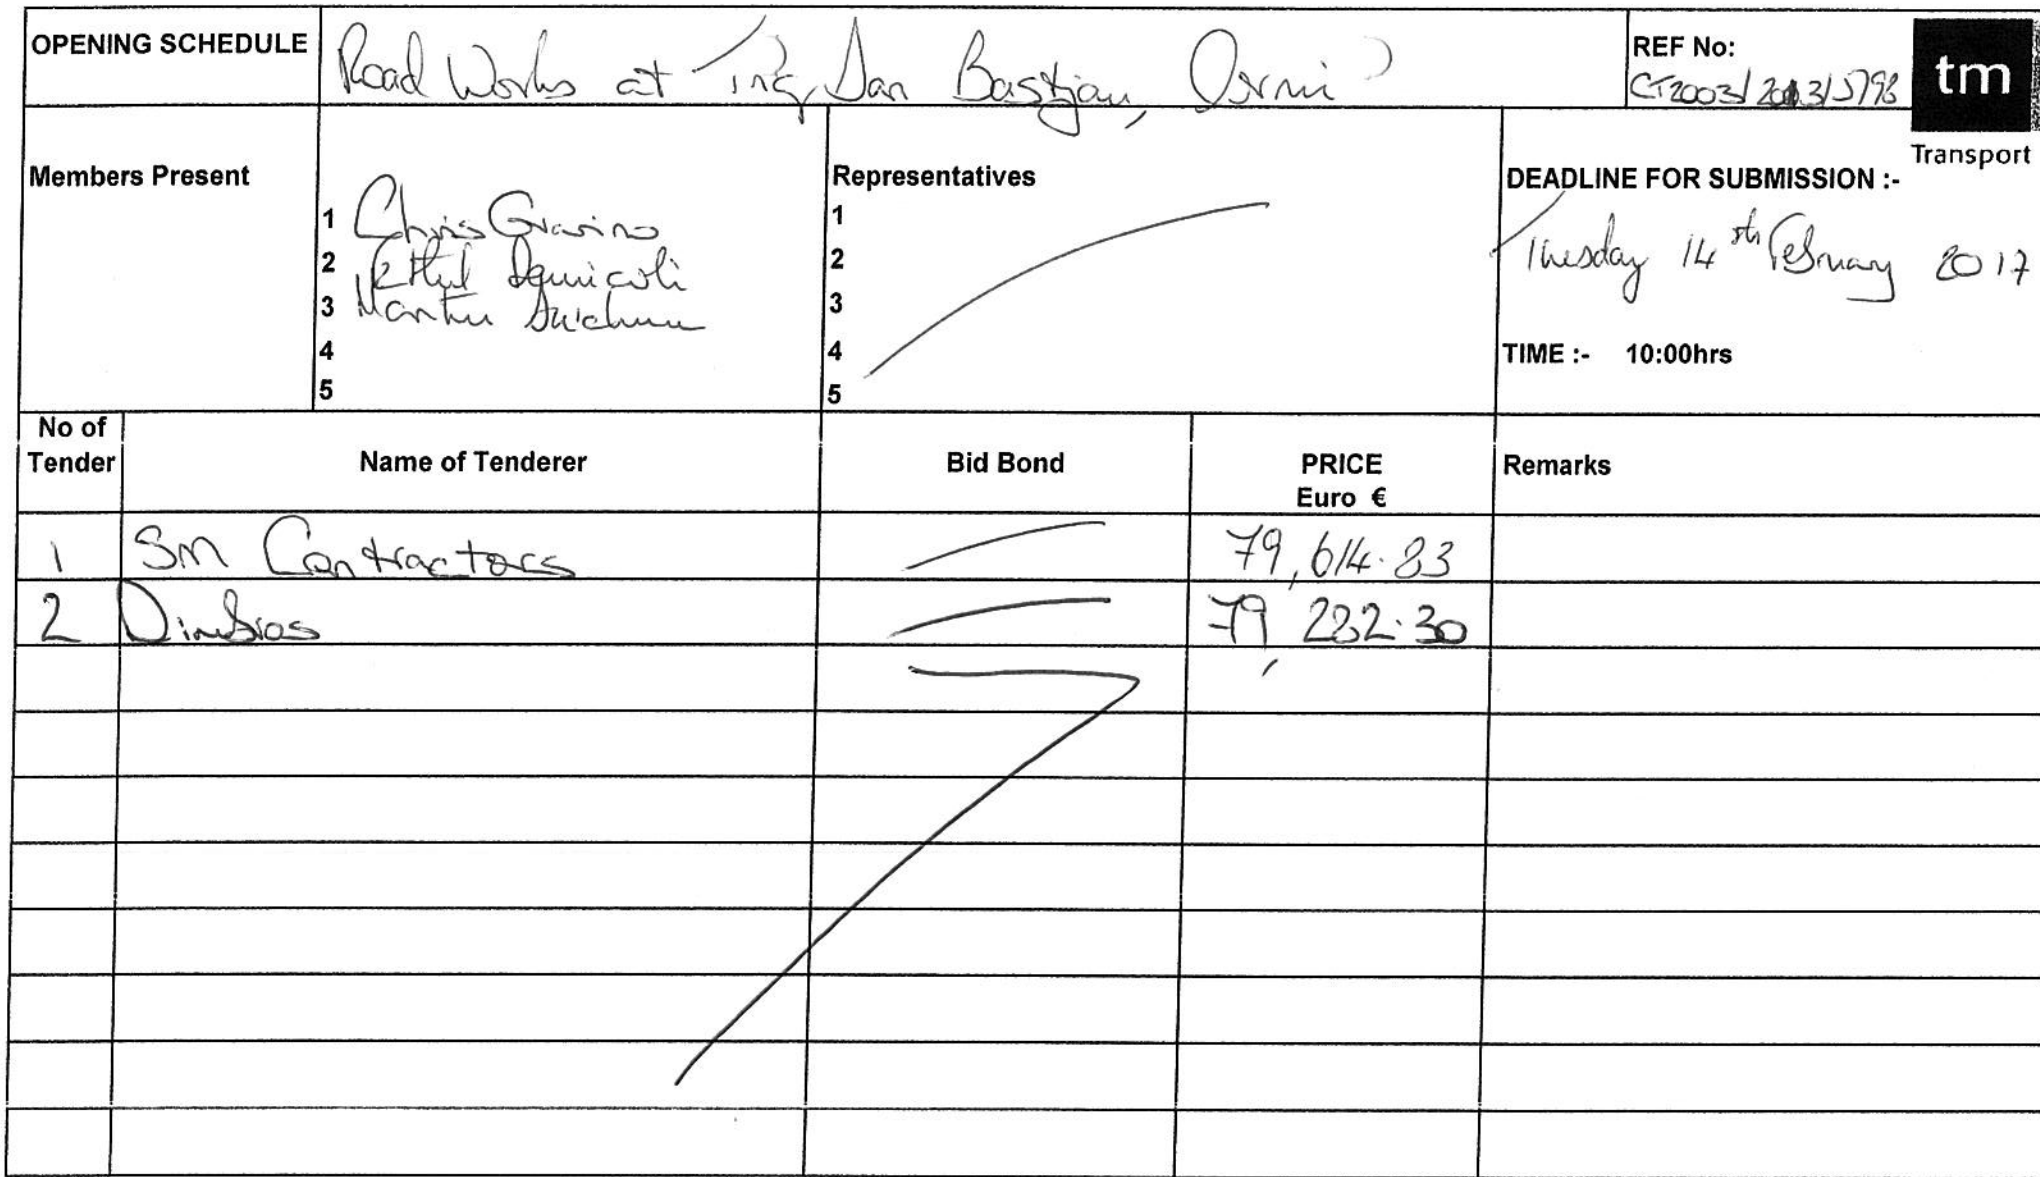 OPENING SCHEDULE Road Works at Triq San Bastjan, Qormi
REF No:
CT2003/2013/5798
tm
Transport
Members Present
1 Chris Gravino
2 Ethel Demicoli
3 Martin
4
5
Representatives
1
2
3
4
5
DEADLINE FOR SUBMISSION :-
Tuesday 14th February 2017
TIME :- 10:00hrs
No of Tender Name of Tenderer Bid Bond PRICE Euro € Remarks
1 SM Contractors 79,614.83
2 Dimbros 79,282.30